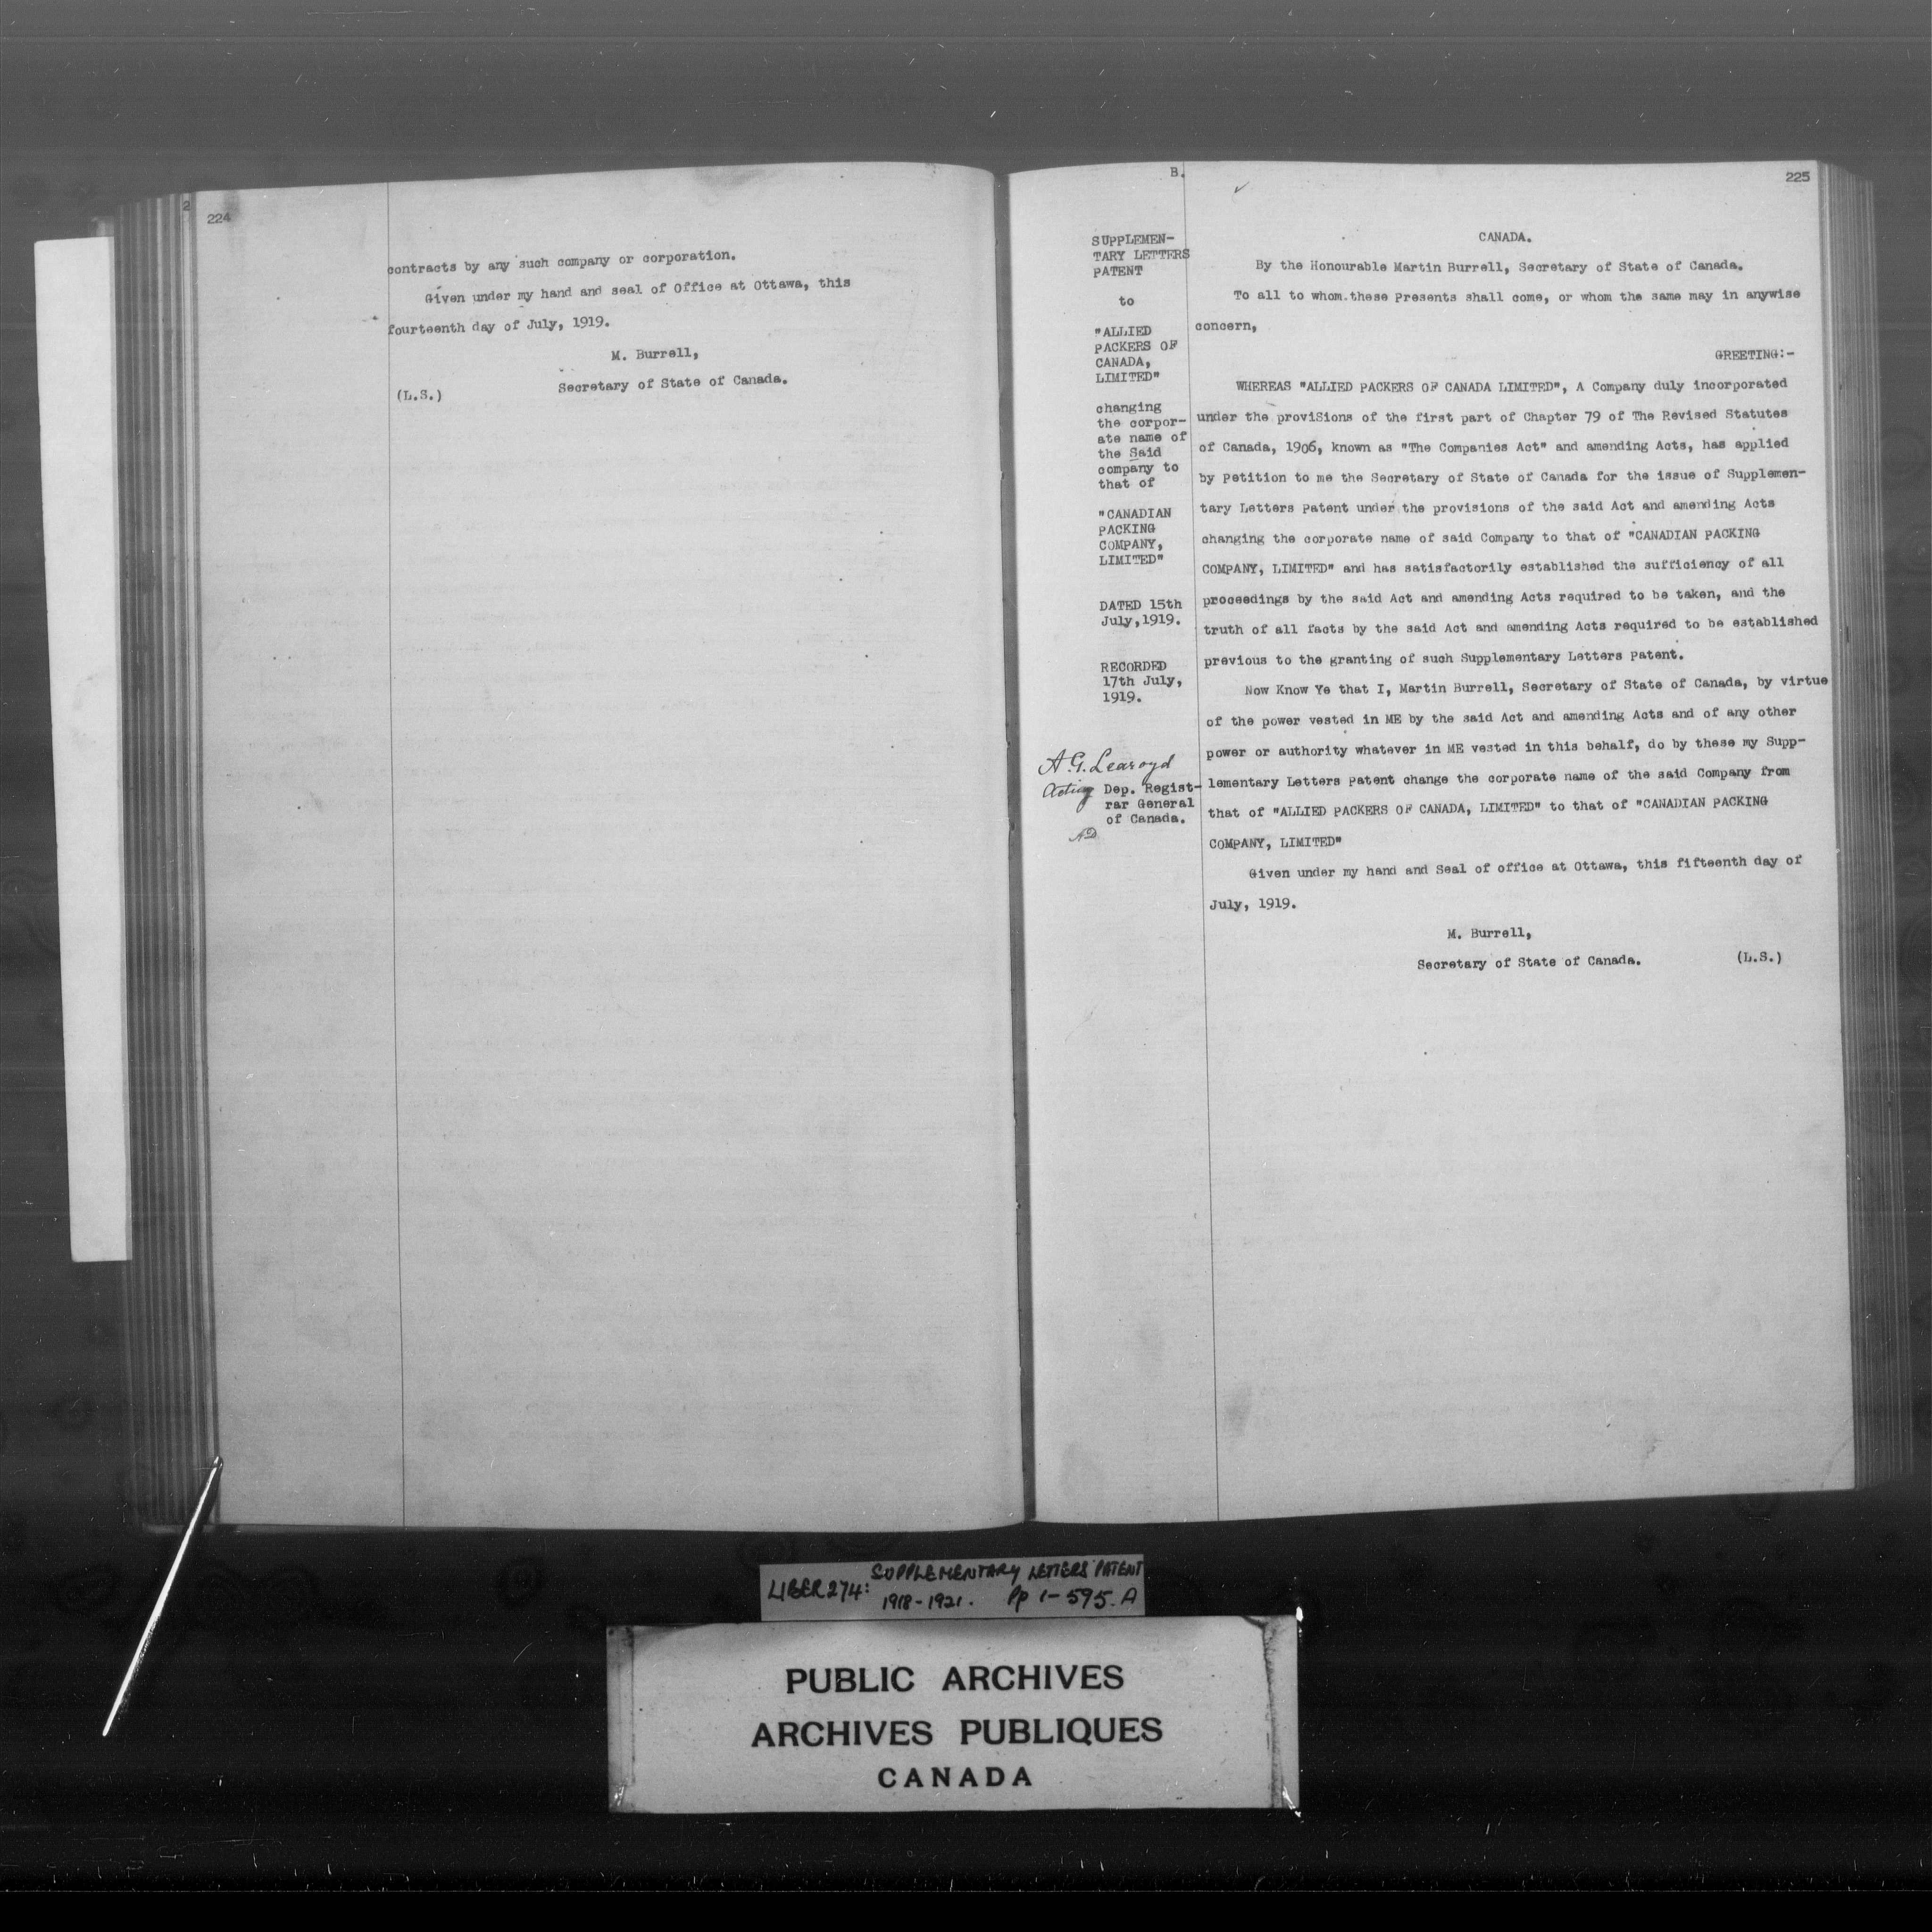 224
contracts by any such company or corporation.
Given under my hand and seal of Office at Ottawa, this
fourteenth day of July, 1919.
M. Burrell,
Secretary of State of Canada.
(L.S.)
B.
225
SUPPLEMEN-
TARY LETTERS
PATENT
to
"ALLIED
PACKERS OF
CANADA,
LIMITED"
changing
the corpor-
ate name of
the Said
company to
that of
"CANADIAN
PACKING
COMPANY,
LIMITED"
DATED 15th
July,1919.
RECORDED
17th July,
1919.
A.G. Learoyd
Acting Dep. Regist-
rar General
of Canada.
AD
CANADA.
By the Honourable Martin Burrell, Secretary of State of Canada.
To all to whom.these Presents shall come, or whom the same may in anywise
concern,
GREETING:-
WHEREAS "ALLIED PACKERS OF CANADA LIMITED", A Company duly incorporated
under the proviSions of the first part of Chapter 79 of The Revised Statutes
of Canada, 1906, known as "The Companies Act" and amending Acts, has applied
by Petition to me the Secretary of State of Canada for the issue of Supplemen-
tary Letters Patent under the provisions of the said Act and amending Acts
changing the corporate name of said Company to that of "CANADIAN PACKING
COMPANY, LIMITED" and has satisfactorily established the sufficiency of all
proceedings by the said Act and amending Acts required to be taken, and the
truth of all facts by the said Act and amending Acts required to be established
previous to the granting of such Supplementary Letters Patent.
Now Know Ye that I, Martin Burrell, Secretary of State of Canada, by virtue
of the power vested in ME by the said Act and amending Acts and of any other
power or authority whatever in ME vested in this behalf, do by these my Supp-
lementary Letters Patent change the corporate name of the said Company from
that of "ALLIED PACKERS OF CANADA, LIMITED" to that of "CANADIAN PACKING
COMPANY, LIMITED"
Given under my hand and Seal of office at Ottawa, this fifteenth day of
July, 1919.
M. Burrell,
Secretary of State of Canada. (L.S.)
LIBER 274: SUPPLEMENTARY LETTERS PATENT
1918-1921. Pp 1-595. A
PUBLIC ARCHIVES
ARCHIVES PUBLIQUES
CANADA